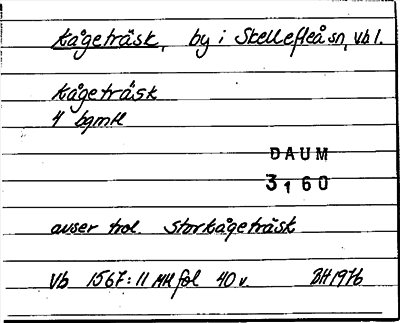 Kågeträsk, by i Skellefteå sn, Vb l.
Kågeträsk
4 bgmtl
DAUM
3160
avser trol. Storkågeträsk
Vb 1567:11 MH fol 40 v. BH 1976